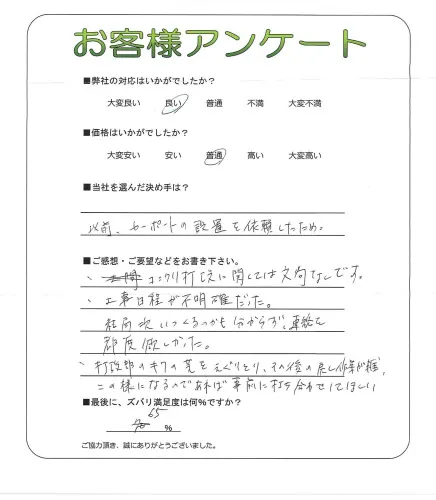 お客様アンケート
■弊社の対応はいかがでしたか?
大変良い 良い 普通 不満 大変不満
■価格はいかがでしたか?
大変安い 安い 普通 高い 大変高い
■当社を選んだ決め手は?
以前、カーポートの設置を依頼したため。
■ご感想・ご要望などをお書き下さい。
、 コンクリ打設に関しては文句なしです。
・工事日程が不明確だった。
結局次いつくるのかも分からず、連絡を
都度欲しかった。
、打設部のキワの芝をえぐりとり、その後の戻し作業が雑、
この様になるのであれば事前に打ち合わせしてほしい
■最後に、ズバリ満足度は何%ですか?
65
%
ご協力頂き、誠にありがとうございました。